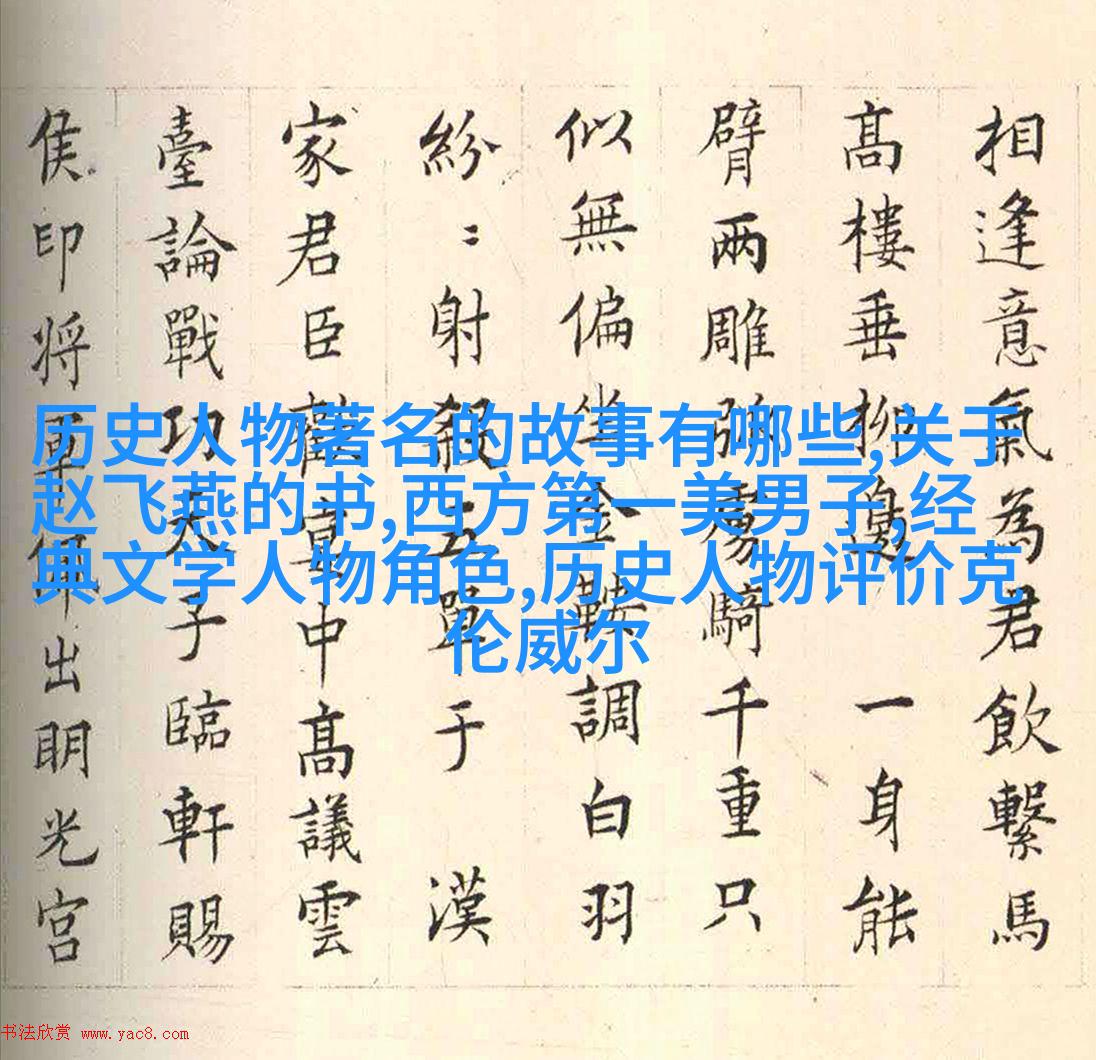 相逢意氣為君飲繫馬
高樓垂柳邊 一身能
臂兩雕弧虜騎千重只
似無偏坐金鞍調白羽
紛〻射殺五單于 漢
家君臣歡宴中高議雲
臺論戰功天子臨軒賜
侯印将軍佩出明光宮
历史人物著名的故事有哪些,关于
赵飞燕的书,西方第一美男子,经
典文学人物角色,历史人物评价克
伦威尔
书法欣赏 www.yac8.com